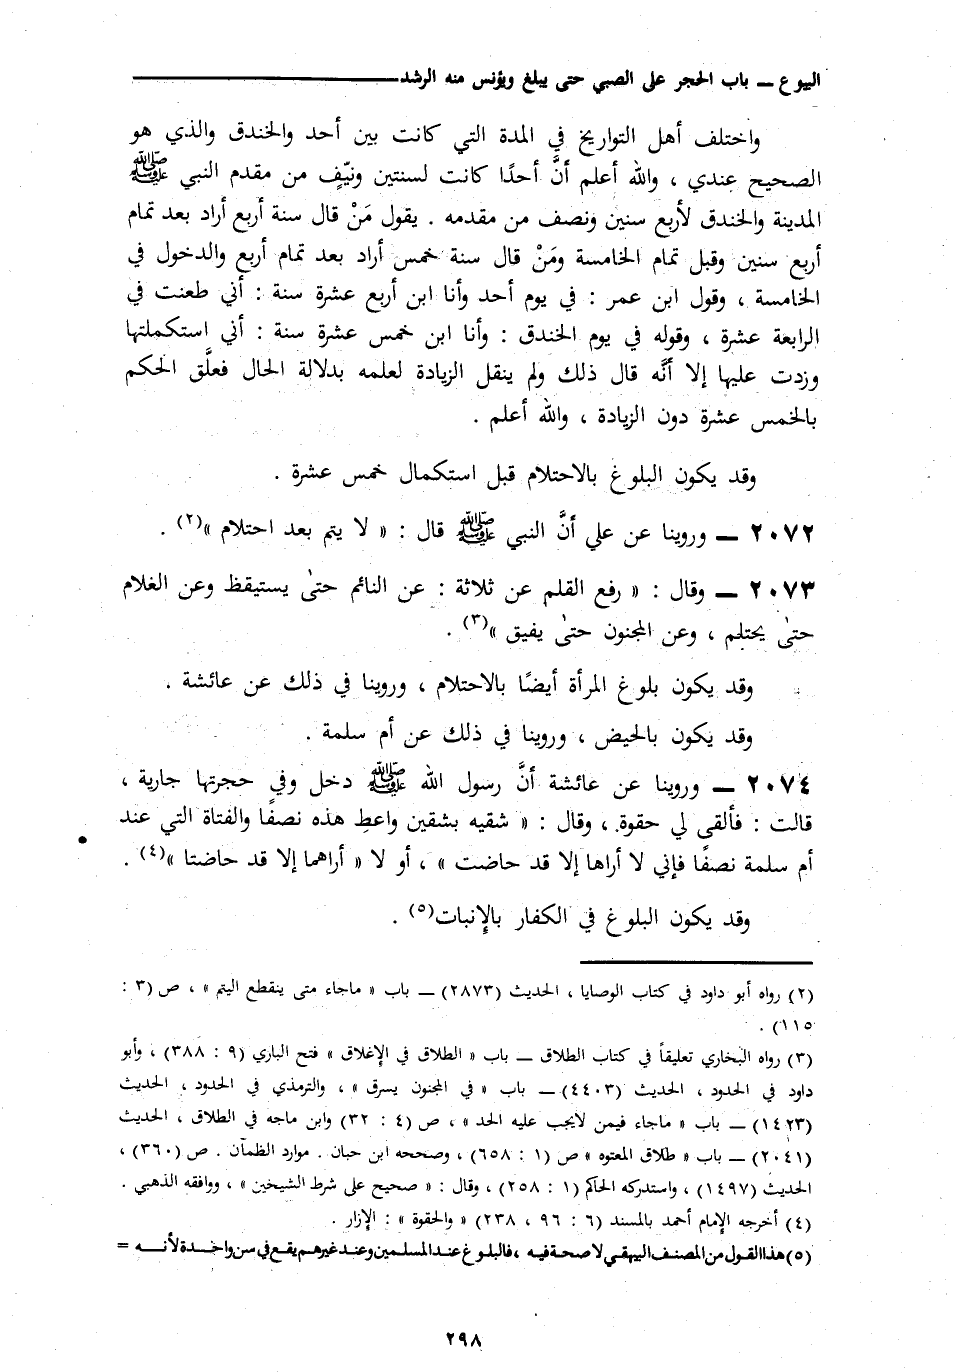 البيوع ــ باب الحجر على الصبي حتى يبلغ ويؤنس منه الرشد
واختلف أهل التواريخ في المدة التي كانت بين أحد والخندق والذي هو
الصحيح عندي ، والله أعلم أنَّ أحدًا كانت لسنتين ونيِّف من مقدم النبي ﷺ
المدينة والخندق لأربع سنين ونصف من مقدمه . يقول مَنْ قال سنة أربع أراد بعد تمام
أربع سنين وقبل تمام الخامسة ومَنْ قال سنة خمس أراد بعد تمام أربع والدخول في
الخامسة ، وقول ابن عمر : في يوم أحد وأنا ابن أربع عشرة سنة : أني طعنت في
الرابعة عشرة ، وقوله في يوم الخندق : وأنا ابن خمس عشرة سنة : أني استكملتها
وزدت عليها إلا أنَّه قال ذلك ولم ينقل الزيادة لعلمه بدلالة الحال فعلَّق الحكم
بالخمس عشرة دون الزيادة ، والله أعلم .
وقد يكون البلوغ بالاحتلام قبل استكمال خمس عشرة .
٢٠٧٢ ــ وروينا عن علي أنَّ النبي ﷺ قال : « لا يتم بعد احتلام »(٢) .
٢٠٧٣ ــ وقال : « رفع القلم عن ثلاثة : عن النائم حتىٰ يستيقظ وعن الغلام
حتىٰ يحتلم ، وعن المجنون حتىٰ يفيق »(٣) .
وقد يكون بلوغ المرأة أيضًا بالاحتلام ، وروينا في ذلك عن عائشة .
وقد يكون بالحيض ، وروينا في ذلك عن أم سلمة .
٢٠٧٤ ــ وروينا عن عائشة أنَّ رسول الله ﷺ دخل وفي حجرتها جارية ،
قالت : فألقى لي حقوة ، وقال : « شقيه بشقين واعطِ هذه نصفًا والفتاة التي عند
أم سلمة نصفًا فإني لا أراها إلا قد حاضت » ، أو لا « أراهما إلا قد حاضتا »(٤) .
وقد يكون البلوغ في الكفار بالإنبات(٥) .
(٢) رواه أبو داود في كتاب الوصايا ، الحديث (٢٨٧٣) ــ باب « ماجاء متى ينقطع اليتم » ، ص (٣ :
١١٥) .
(٣) رواه البخاري تعليقاً في كتاب الطلاق ــ باب « الطلاق في الإغلاق » فتح الباري (٩ : ٣٨٨) ، وأبو
داود في الحدود ، الحديث (٤٤٠٣) ــ باب « في المجنون يسرق » ، والترمذي في الحدود ، الحديث
(١٤٢٣) ــ باب « ماجاء فيمن لايجب عليه الحد » ، ص (٤ : ٣٢) وابن ماجه في الطلاق ، الحديث
(٢٠٤١) ــ باب « طلاق المعتوه » ص (١ : ٦٥٨) ، وصححه ابن حبان . موارد الظمآن . ص (٣٦٠) ،
الحديث (١٤٩٧) ، واستدركه الحاكم (١ : ٢٥٨) ، وقال : « صحيح على شرط الشيخين » ، ووافقه الذهبي .
(٤) أخرجه الإمام أحمد بالمسند (٦ : ٩٦ ، ٢٣٨) « والحقوة » : الإزار .
(٥) هذا القول من المصنف البيهقي لا صحة فيه ، فالبلوغ عند المسلمين وعند غيرهم يقع في سن واحدة لأنه =
٢٩٨